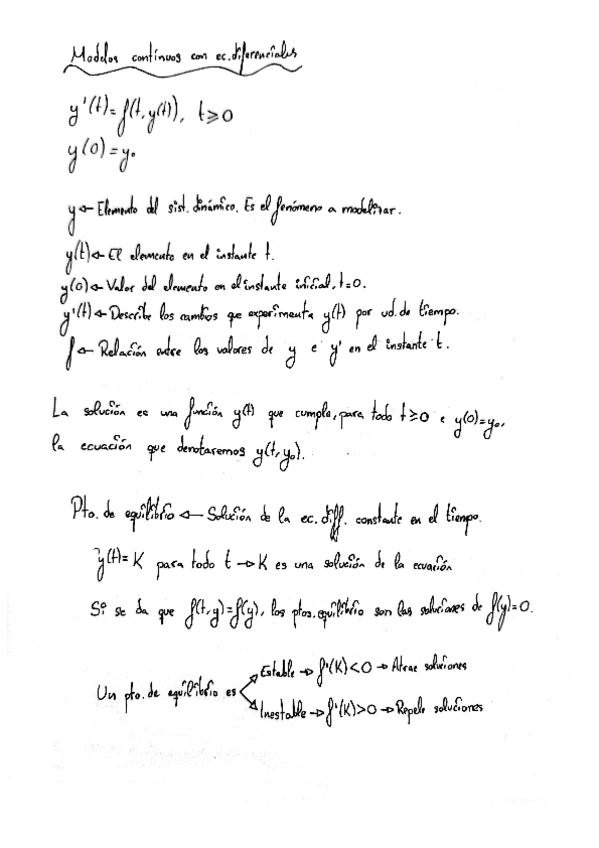 Modelos continuos con ec. diferenciales
y'(t)=f(t,y(t)), t≥0
y(0)=y₀
y ← Elemento del sist. dinámico. Es el fenómeno a modelizar.
y(t) ← El elemento en el instante t.
y(0) ← Valor del elemento en el instante inicial, t=0.
y'(t) ← Describe los cambios que experimenta y(t) por ud. de tiempo.
f ← Relación entre los valores de y e y' en el instante t.
La solución es una función y(t) que cumple, para todo t≥0 e y(0)=y₀,
la ecuación que denotaremos y(t,y₀).
Pto. de equilibrio ← Solución de la ec. diff. constante en el tiempo.
y(t)=K para todo t → K es una solución de la ecuación
Si se da que f(t,y)=f(y), los ptos. equilibrio son las soluciones de f(y)=0.
Estable → f'(K)<0 → Atrae soluciones
Un pto. de equilibrio es
Inestable → f'(K)>0 → Repele soluciones